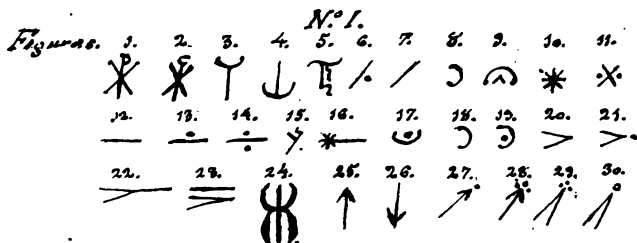 N.º I.
Figuras. 1. 2. 3. 4. 5. 6. 7. 8. 9. 10. 11.
12. 13. 14. 15. 16. 17. 18. 19. 20. 21.
22. 23. 24. 25. 26. 27. 28. 29. 30.